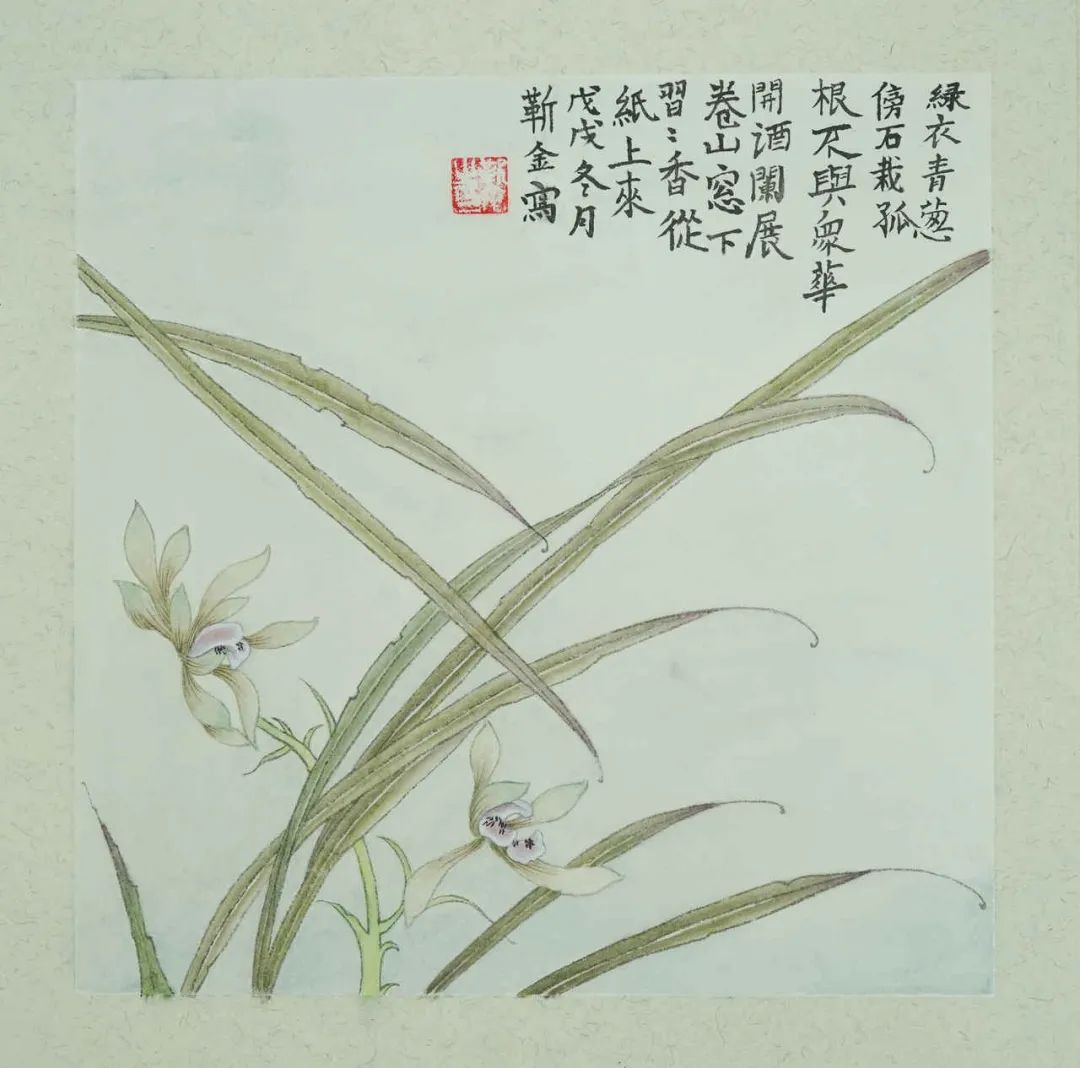 緑衣青葱
傍石栽孤
根不與衆華
開酒闌展
卷山窓下
習〻香從
紙上來
戊戌冬月
靳金寫